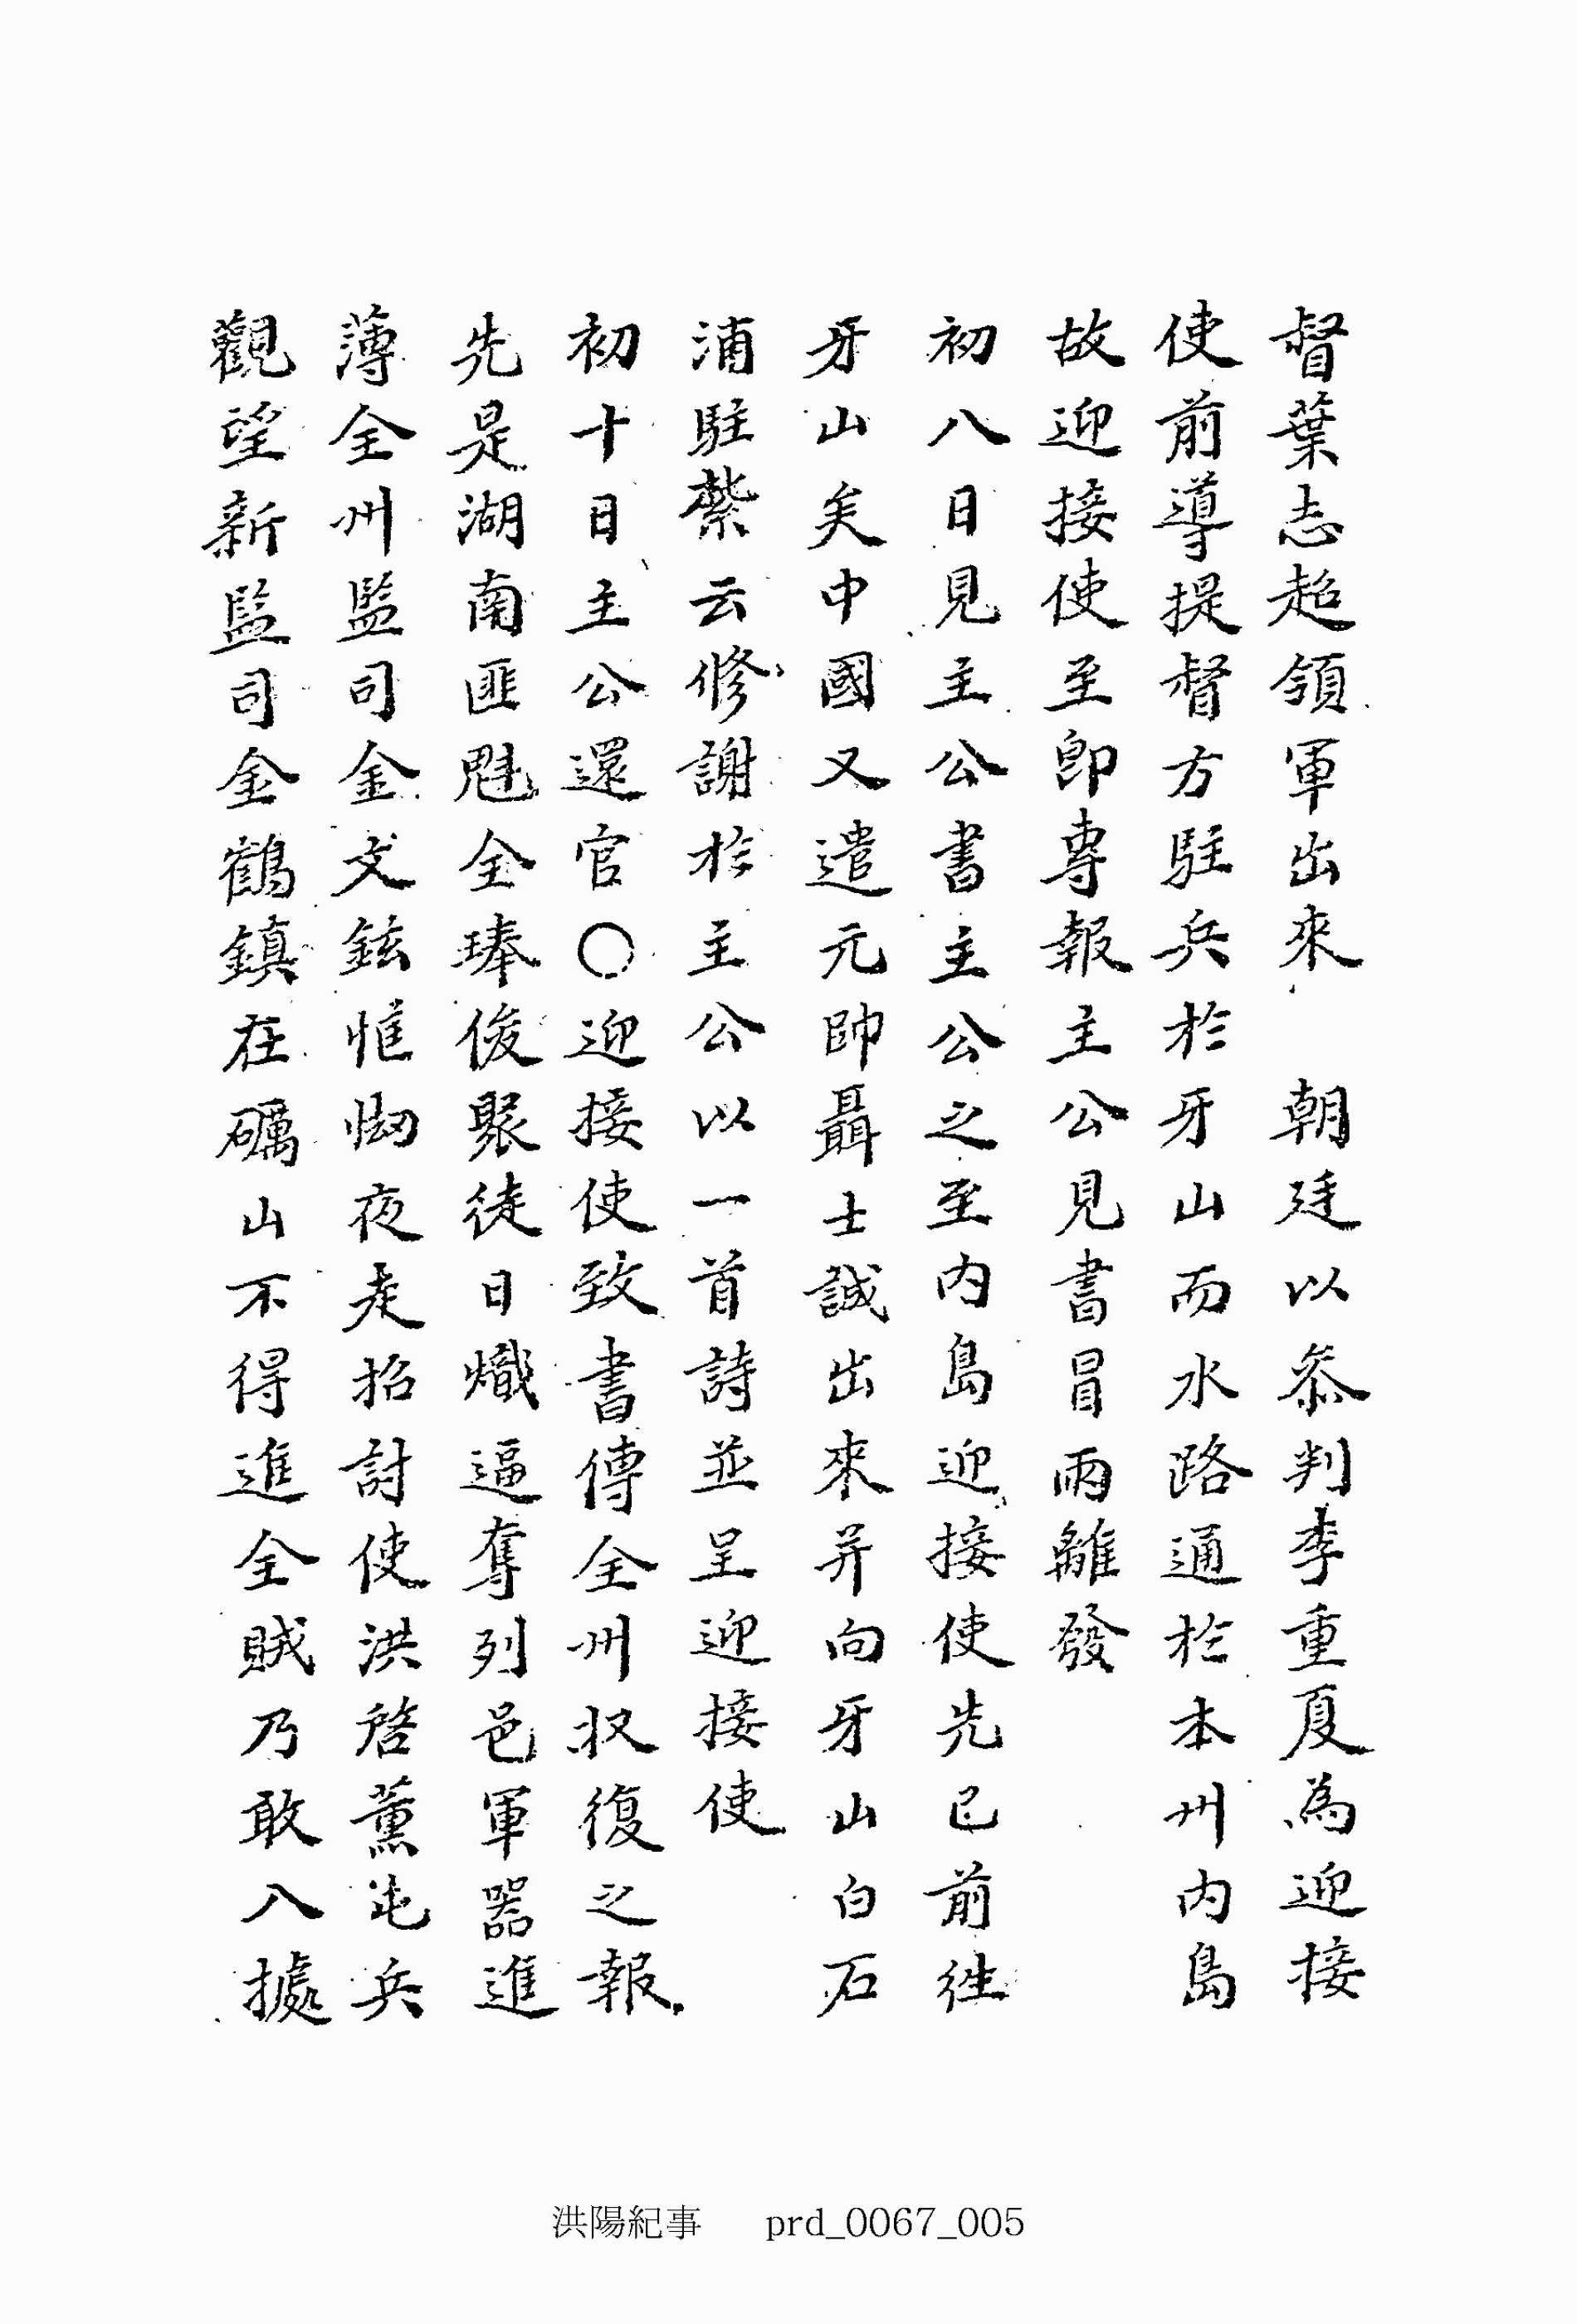 督葉志超領軍出來　朝廷以叅判李重夏為迎接
使前導提督方駐兵於牙山而水路通於本州内島
故迎接使至卽專報主公見書冒雨離發
初八日見主公書主公之至内島迎接使先已前徃
牙山矣中國又遣元帥聶士誠出來并向牙山白石
浦駐紮云修謝於主公以一首詩並呈迎接使
初十日主公還官○迎接使致書傳全州収復之報
先是湖南匪魁全琫俊聚徒日熾逼奪列邑軍器進
薄全州監司金文鉉恇㤼夜走招討使洪啓薰屯兵
觀望新監司金鶴鎮在礪山不得進全賊乃敢入據
洪陽紀事　prd_0067_005